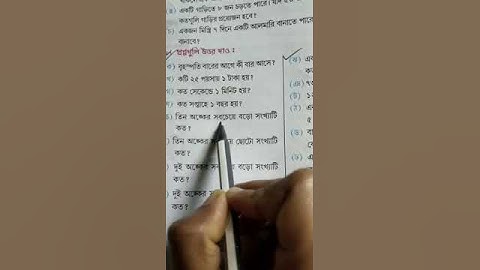 একটি গাড়িতে ৮ জন চড়তে পারে। যদি
কতগুলি গাড়ির প্রয়োজন হবে?
একজন মিস্ত্রি ৭ দিনে একটি আলমারি বানাতে পারে
বানাবে?
প্রশ্নগুলি উত্তর দাও :
বৃহস্পতি বারের আগে কী বার আসে?
কটি ২৫ পয়সায় ১ টাকা হয়?
কত সেকেন্ডে ১ মিনিট হয়?
কত সপ্তাহে ১ বছর হয়?
তিন অঙ্কের সবচেয়ে বড়ো সংখ্যাটি
কত?
তিন অঙ্কের ছোটো সংখ্যাটি
কত?
দুই অঙ্কের বড়ো সংখ্যাটি
কত?
দুই অঙ্কের
কত?